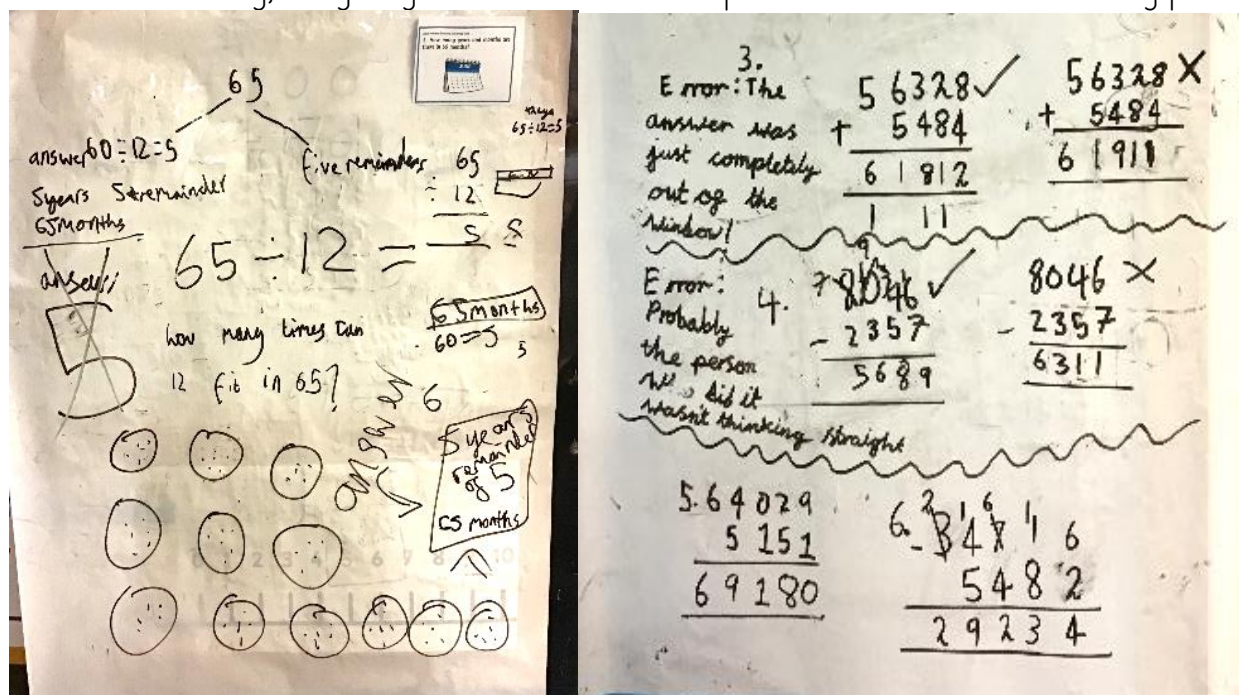 1. How many years and months are there in 65 months?
65
65÷12=5
answer 60÷12=5
five remainders
5years 5remainder
65months
65
÷ 12
5
65÷12=
answer
how many times can
12 fit in 65?
65months
60=5
5
6
answer
5 year
remainder
of 5
months
2 3 4 5 6 7 8 10
3.
Error: The
answer was
just completely
out of the
window!
56328✓
+ 5484
61812
1 11
56328 X
+ 5484
61911
Error:
Probably
the person
who did it
wasn't thinking straight
4.
9
7 8046 ✓
- 2357
5689
8046 X
- 2357
6311
5. 64029
5151
69180
6. 2 1 6 1
- 34716
5482
29234